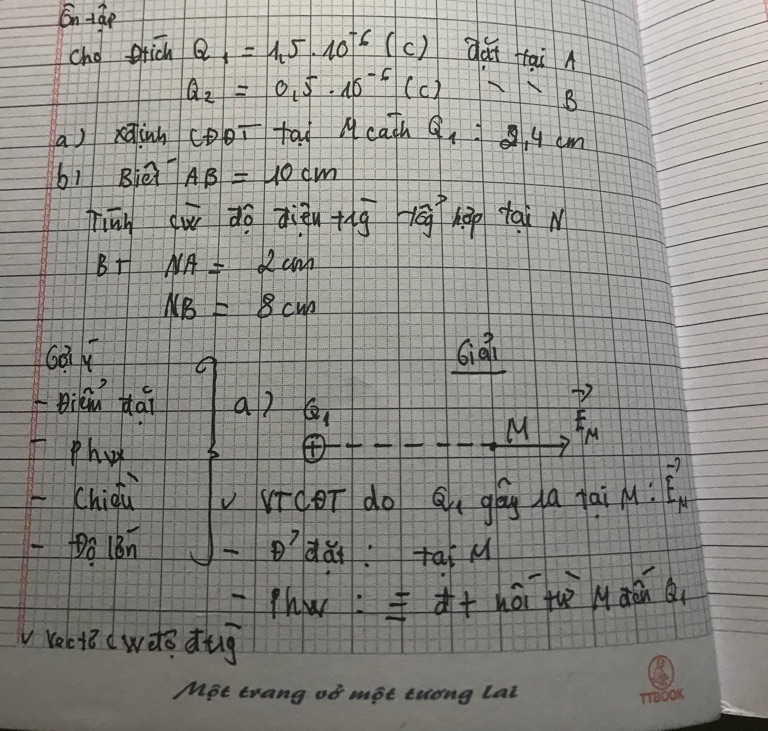 Ôn tập
Cho Đtích Q₁ = 1,5 . 10⁻⁶ (C) đặt tại A
Q₂ = 0,5 . 10⁻⁶ (C) \ \ B
a) Xđịnh CĐĐT tại M cách Q₁ : 2,4 cm
b) Biết AB = 10 cm
Tính cừ độ điện tng tổg hợp tại N
BT NA = 2 cm
NB = 8 cm
Gợi ý
Giải
- Điểm đặt
a) Q₁ M E⃗M
+
- Phw
- Chiều
v VTCĐT do Q₁ gây ra tại M : E⃗M
- Độ lớn
- Đ' đặt : tại M
- Phw : ≡ đt nối từ M đến Q₁
v Vectơ cw độ đtng
Một trang vở một tương lai
TTBOOK